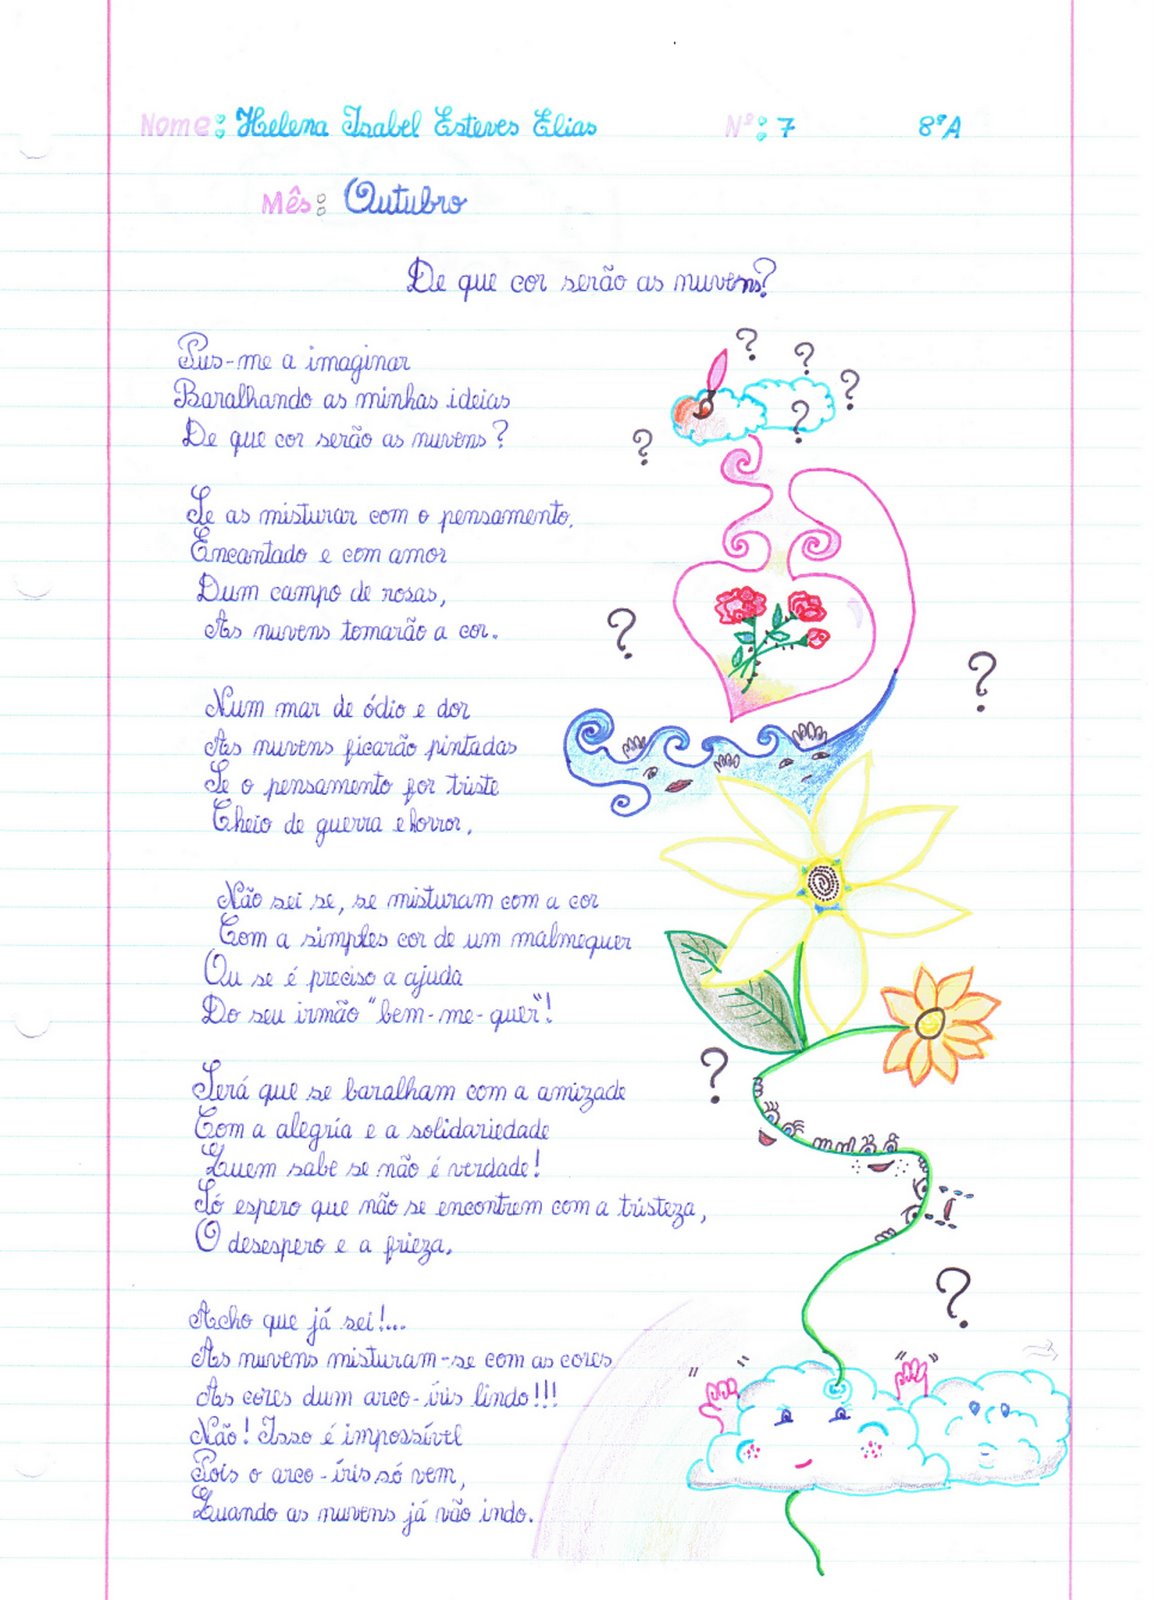 Nome: Helena Isabel Esteves Elias Nº: 7 8ºA
Mês: Outubro
De que cor serão as nuvens?
Pus-me a imaginar
Baralhando as minhas ideias
De que cor serão as nuvens?
Se as misturar com o pensamento,
Encantado e com amor
Dum campo de rosas,
As nuvens tomarão a cor.
Num mar de ódio e dor
As nuvens ficarão pintadas
Se o pensamento for triste
Cheio de guerra e horror,
Não sei se, se misturam com a cor
Com a simples cor de um malmequer
Ou se é preciso a ajuda
Do seu irmão "bem-me-quer"!
Será que se baralham com a amizade
Com a alegria e a solidariedade
Quem sabe se não é verdade!
Só espero que não se encontrem com a tristeza,
O desespero e a frieza.
Acho que já sei!...
As nuvens misturam-se com as cores
As cores dum arco-íris lindo!!!
Não! Isso é impossível
Pois o arco-íris só vem,
Quando as nuvens já vão indo.